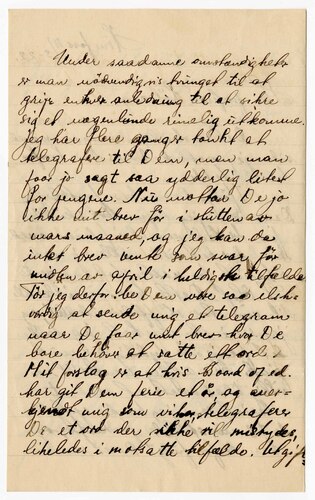 Under saadanne omstændigheter
er man nødvendigvis tvunget til at
gripe enhver anledning til at sikre
sig et nogenlunde rimelig utkomme.
jeg har flere ganger tænkt at
telegrafere til Dem, men man
faar jo sagt saa ydderlig litet
for pengene. Nu mottar De jo
ikke mit brev før i slutten av
mars maaned, og jeg kan da
intet brev vente som svar før
midten av april i heldigste tilfælde
Tør jeg derfor be Dem være saa elsk-
værdig at sende mig et telegram
naar De faar mit brev hvor De
bare behøver at sætte ett ord.
Mit forslag er at hvis Board of ed.
har git Dem ferie et år, og aner-
kjendt mig som vikar, telegraferer
De et ord der ikke vil mistydes,
likeledes i motsatte tilfælde. Utgift